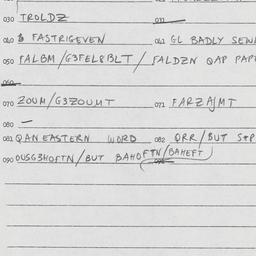 030 TROLDZ 031
040 FASTRIGEVEN 041 GL BADLY SEW
050 FALBM/G3FEL8BLT/FALDZN QAP PAP
060
070 ZOUM/G3ZOUMT 071 FARZAJMT
080 —
081 QAN EASTERN WORD 082 QRR/BUT STP
090 OUSG3HOFTN/BUT BAHOFTN/BAHEFT